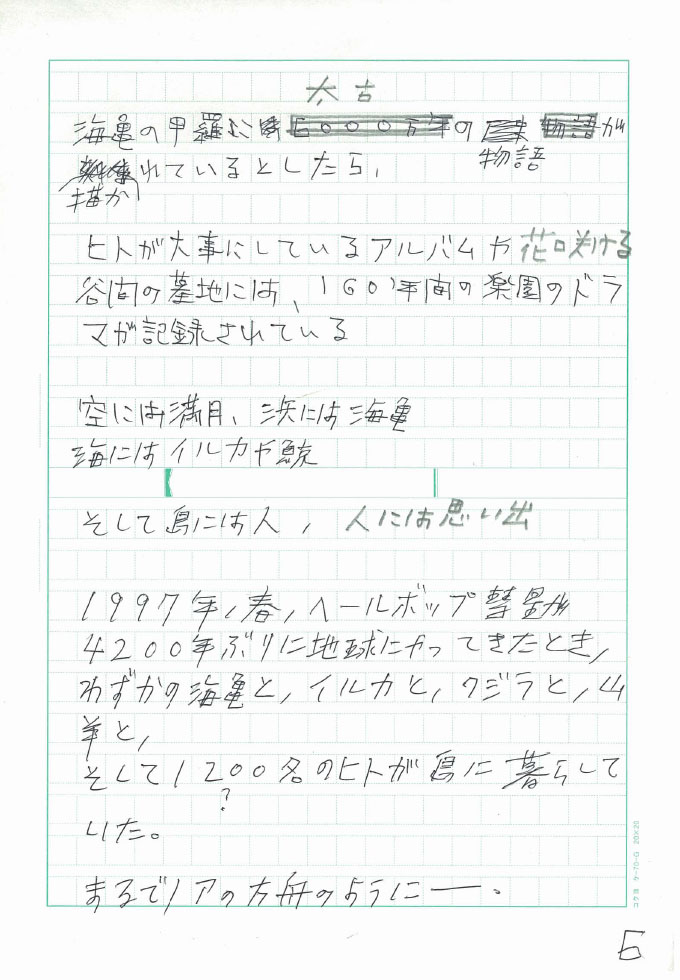 太古
海亀の甲羅には6000万年の 物語が
物語
れているとしたら、
描か
ヒトが大事にしているアルバムや花咲ける
谷間の墓地には、160年間の楽園のドラ
マが記録されている
空には満月、浜には海亀
海にはイルカや鯨
そして島には人、人には思い出
1997年,春,ヘールボップ彗星が
4200年ぶりに地球にやってきたとき,
わずかの海亀と,イルカと,クジラと,山
羊と,
そして1200名のヒトが島に暮らして
?
いた。
まるでノアの方舟のように——.
コクヨ ケ-70-G 20×20
6